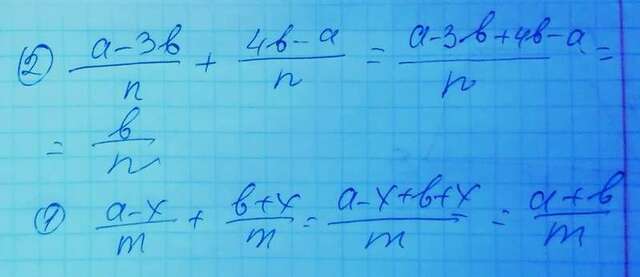 ② (a-3b)/n + (4b-a)/n = (a-3b+4b-a)/n =
= b/n
① (a-x)/m + (b+x)/m = (a-x+b+x)/m = (a+b)/m